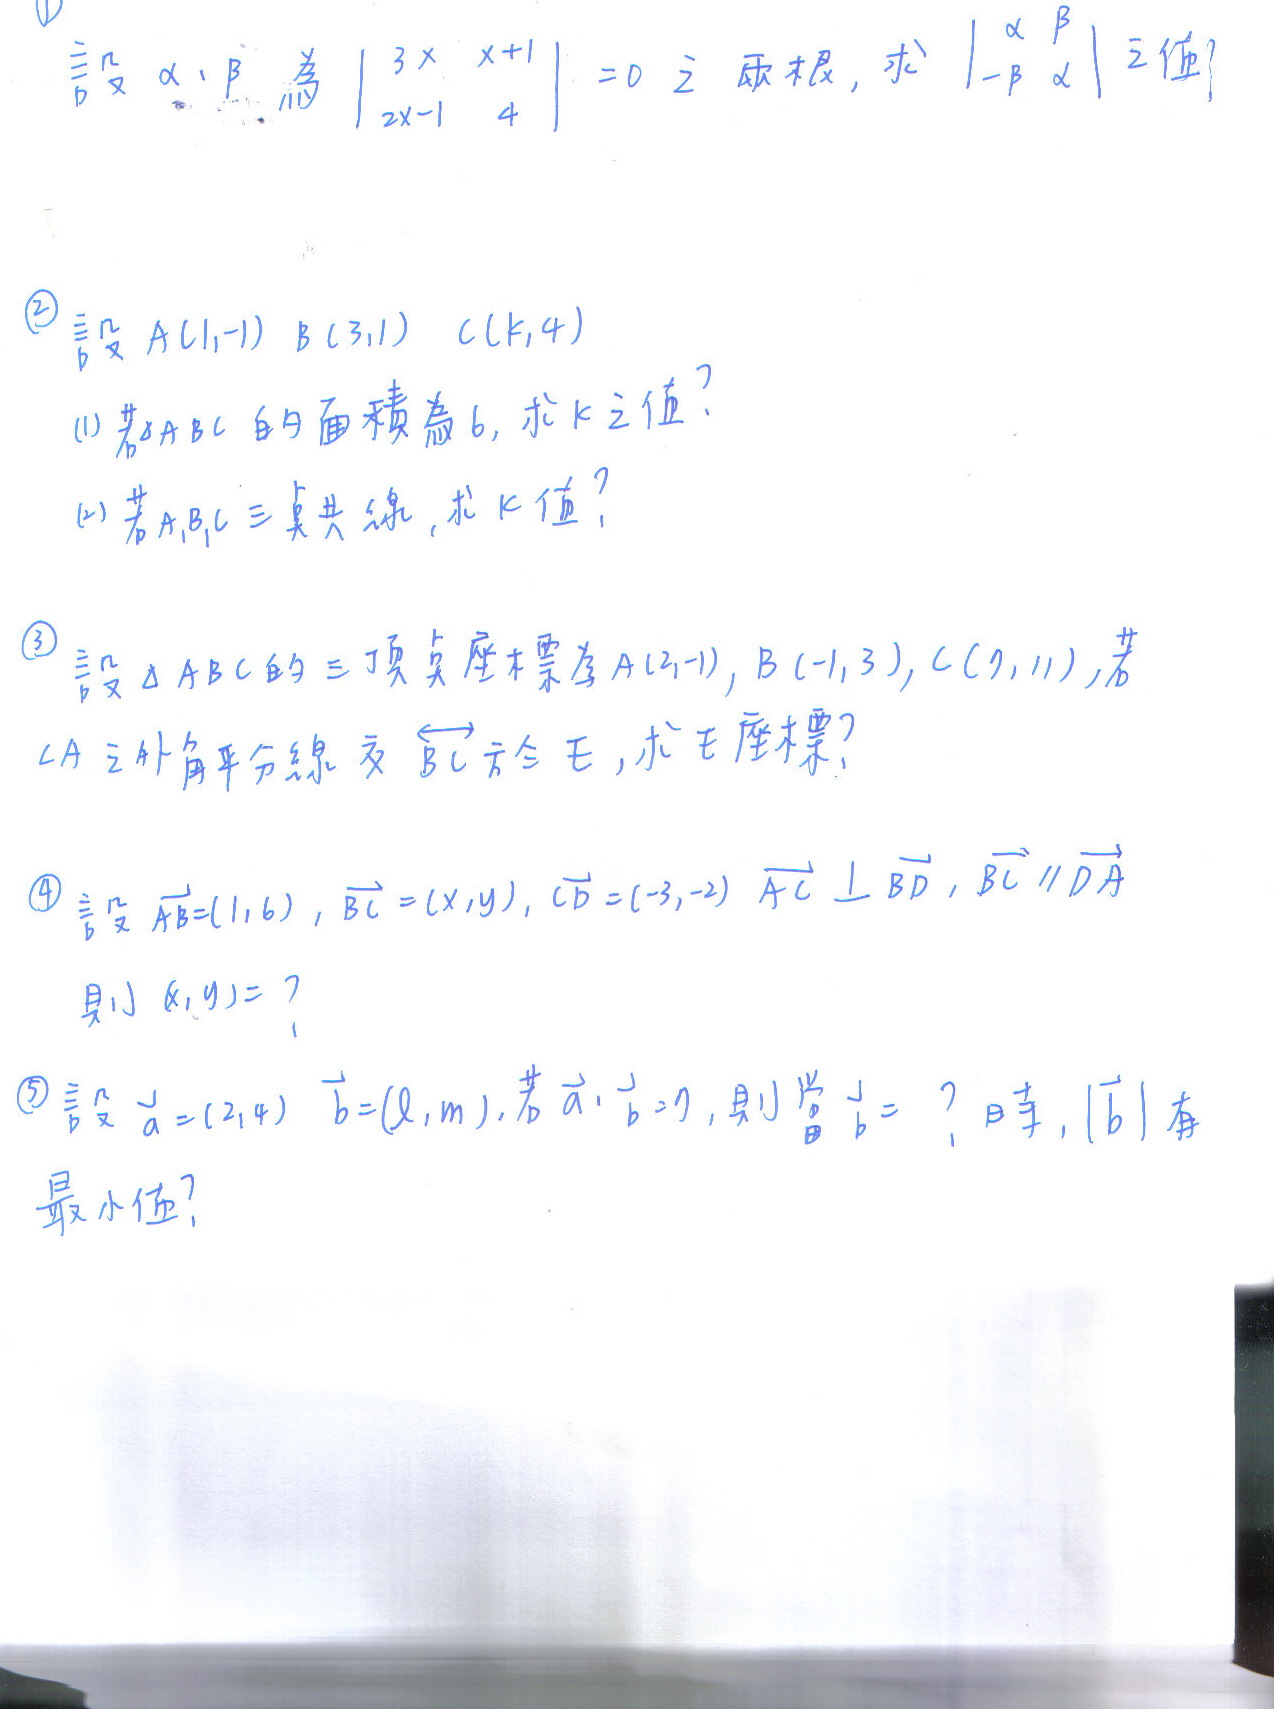 ①
設 α、β 為 | 3x x+1 | =0 之 兩根, 求 | α β | 之值?
| 2x-1 4 | | -β α |
② 設 A(1,-1) B(3,1) C(k,4)
(1) 若△ABC 的面積為6, 求 k 之值?
(2) 若A,B,C三點共線, 求 k 值?
③ 設△ABC的三頂點座標為A(2,-1), B(-1,3), C(7,11),若
∠A 之外角平分線 交 BC 於 E, 求E座標?
④ 設 AB=(1,6), BC=(x,y), CD=(-3,-2) AC⊥BD, BC∥DA
則 (x,y)=?
⑤ 設 a=(2,4) b=(l,m),若 a·b=7,則當 b= ? 時, |b| 有
最小值?